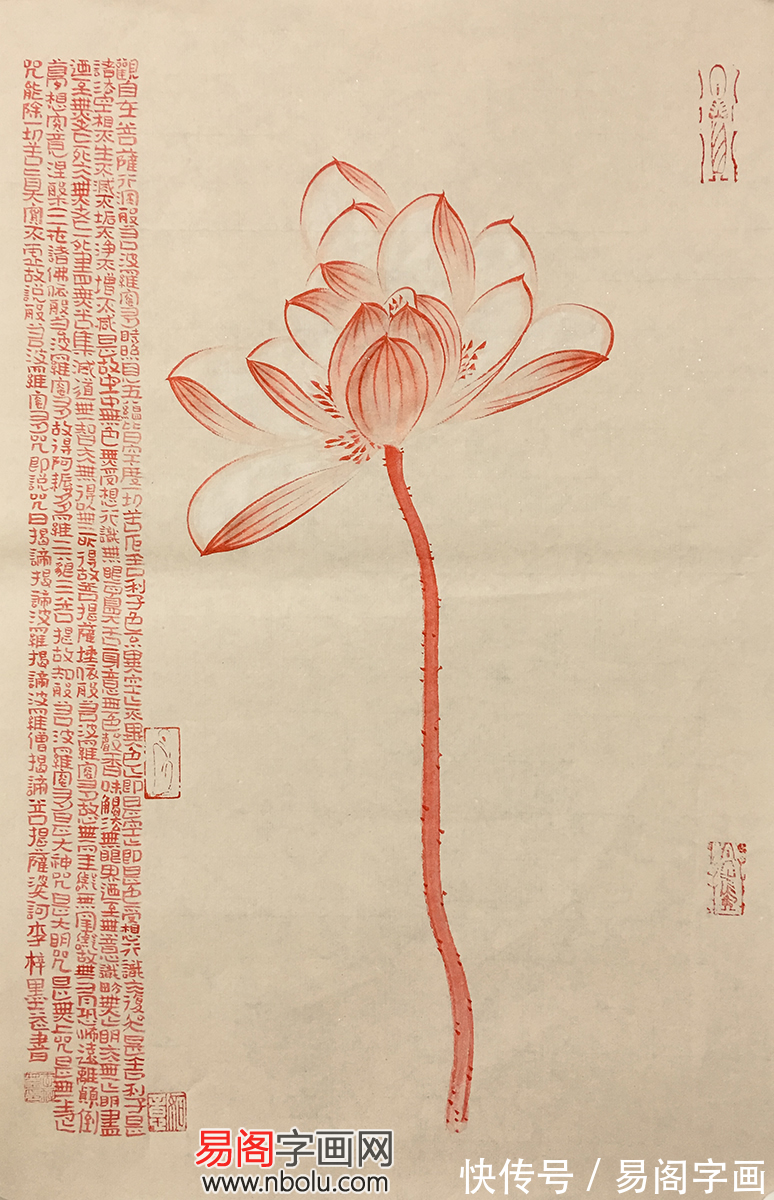 觀自在菩薩行深般若波羅蜜多時照見五蘊皆空度一切苦厄舍利子色不異空々不異色々即是空々即是色受想行識亦復如是舍利子是
諸法空相不生不滅不垢不淨不增不減是故空中無色無受想行識無眼耳鼻舌身意無色聲香味觸法無眼界迺至無意識界無々明亦無々明盡
迺至無老死亦無老死盡無苦集滅道無智亦無得以無所得故菩提薩埵依般若波羅蜜多故心無罣礙無罣礙故無有恐怖遠離顛倒
夢想究竟涅槃三世諸佛依般若波羅蜜多故得阿耨多羅三藐三菩提故知般若波羅蜜多是大神咒是大明咒是無上咒是無等々
咒能除一切苦真實不虛故說般若波羅蜜多咒即說咒曰揭諦揭諦波羅揭諦波羅僧揭諦菩提薩婆訶李梓墨書
易阁字画网
www.nbolu.com
快传号 / 易阁字画